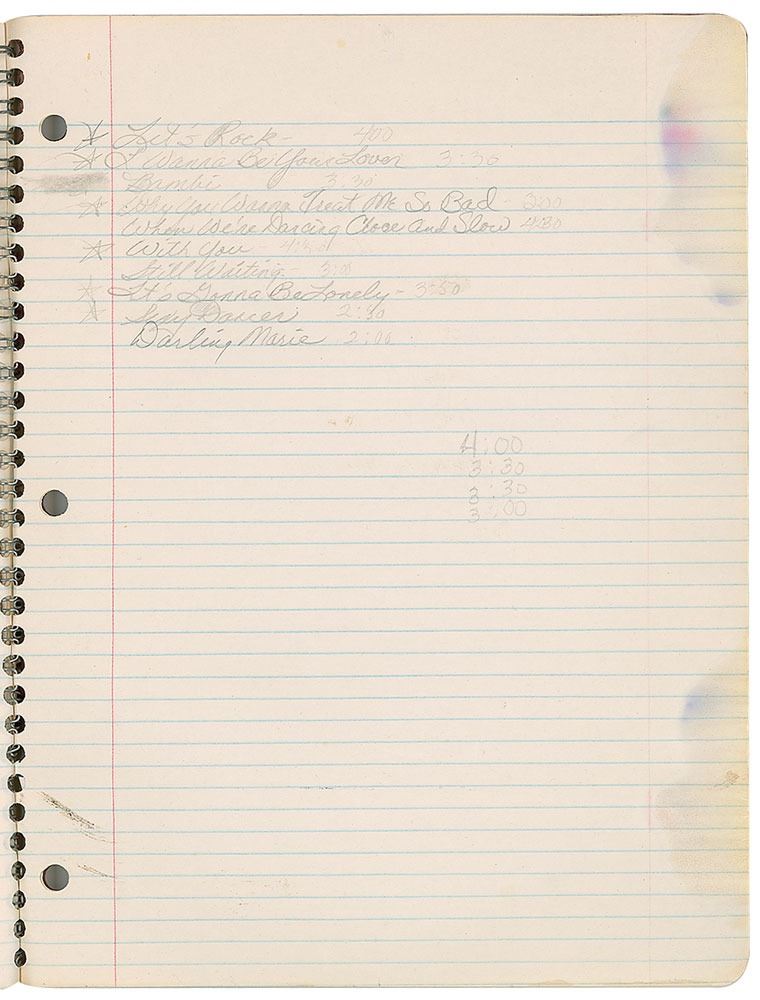 ☆ Let's Rock - 400
☆ I Wanna Be Your Lover 3:30
Bambi 3:30
☆ Why You Wanna Treat Me So Bad - 300
When We're Dancing Close And Slow 4:30
☆ With You - 4:30
Still Waiting - 3:00
☆ It's Gonna Be Lonely - 3:50
☆ Sexy Dancer 2:30
Darling Marie 2:00
4:00
3:30
3:30
3:00